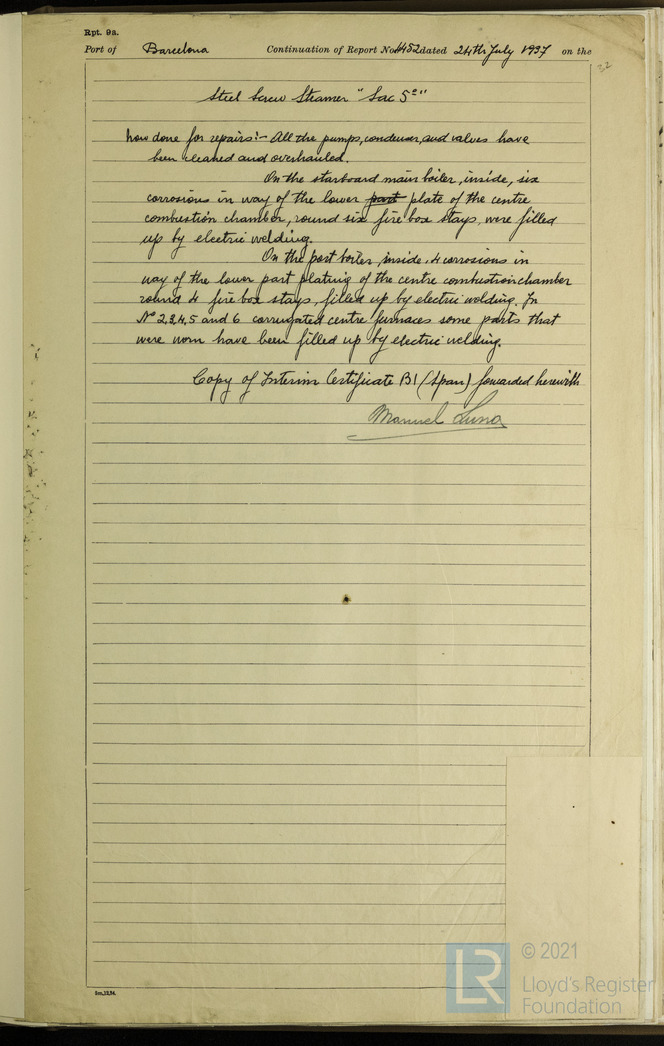 Rpt. 9a.
Port of Barcelona Continuation of Report No 4452 dated 24th July 1937 on the
Steel Screw Steamer "Sac 5º"
now done for repairs:- All the pumps, condenser, and valves have
been cleaned and overhauled.
On the starboard main boiler, inside, six
corrosions in way of the lower part plate of the centre
combustion chamber, round six fire box stays, were filled
up by electric welding.
On the port boiler, inside, 4 corrosions in
way of the lower part plating of the centre combustion chamber
round 4 fire box stays, filled up by electric welding. In
Nº 2,3,4,5 and 6 corrugated centre furnaces some parts that
were worn have been filled up by electric welding.
Copy of Interim Certificate B1 (Span) forwarded herewith
Manuel Luna
LR
© 2021
Lloyd's Register
Foundation